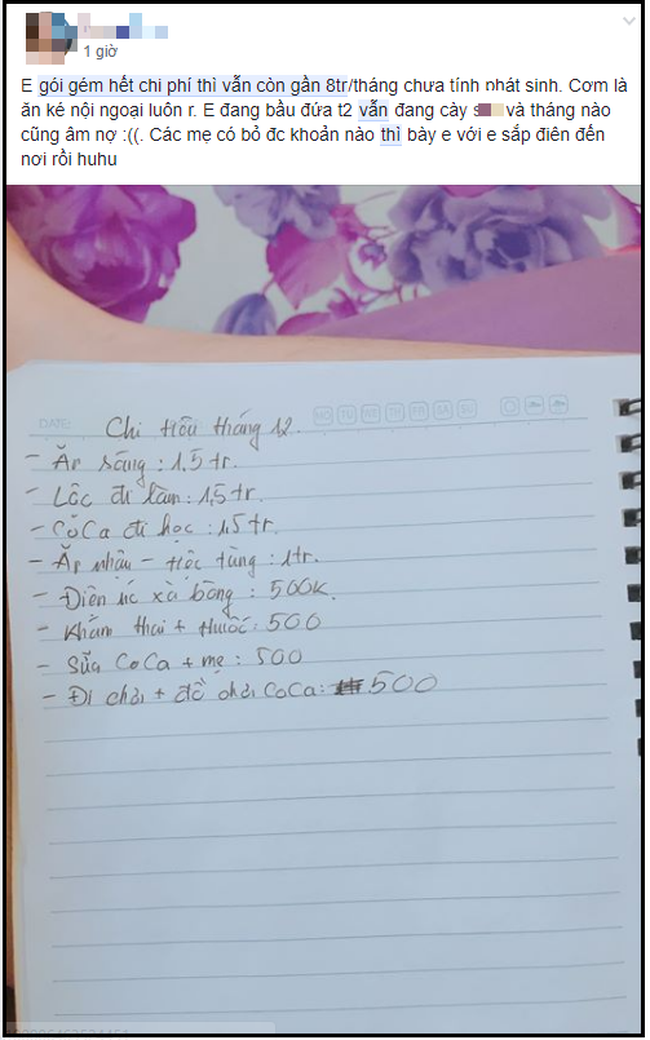 1 giờ
E gói gém hết chi phí thì vẫn còn gần 8tr/tháng chưa tính phát sinh. Cơm là
ăn ké nội ngoại luôn r. E đang bầu đứa t2 vẫn đang cày và tháng nào
cũng âm nợ :((. Các mẹ có bỏ đc khoản nào thì bày e với e sắp điên đến
nơi rồi huhu
DATE:
MO TU WE TH FR SA SU
Chi tiêu tháng 12.
- Ăn sáng : 1,5 tr.
- Lộc đi làm : 1,5 tr.
- CôCa đi học : 1,5 tr.
- Ăn nhậu - tiệc tùng : 1tr.
- Điện úc xà bông : 500K.
- Khám thai + thuốc : 500
- Sữa CoCa + mẹ : 500
- Đi chơi + đồ chơi CoCa: 500